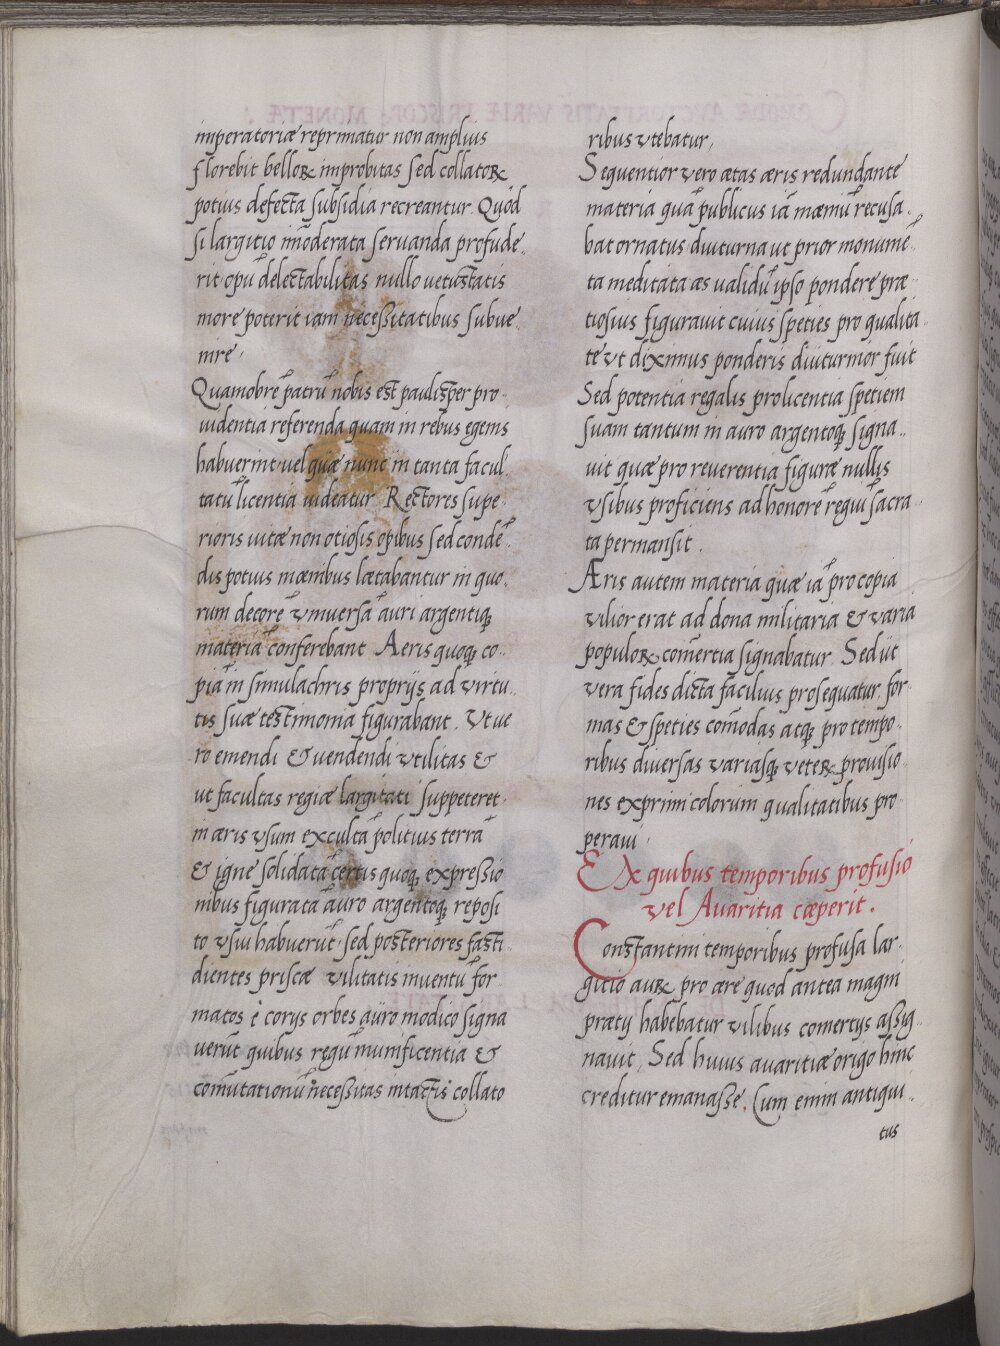 imperatoriæ reprimatur non amplius
florebit belloꝝ improbitas sed collatoꝝ
potius defecta subsidia recreantur. Quod
si largitio im̄oderata seruanda profude
rit opū delectabilitas nullo uetustatis
more poterit iam necessitatibus subue
nire.
Quamobrē patrū nobis est paulisper pro
uidentia referenda quam in rebus egenis
habuerint uel quæ nunc in tanta facul
tatū licentia uideatur. Rectores supe
rioris uitæ non otiosis opibus sed condē
dis potius mœnibus lætabantur in quo
rum decorē vniuersā auri argentiqꝫ
materiā conferebant. Aeris quoqꝫ co
piā in simulachris proprijs ad virtu
tis suæ testimonia figurabant. Vt ue
ro emendi & uendendi vtilitas &
ut facultas regiæ largitati suppeteret
in æris vsum excultā politius terrā
& igne solidatā certis quoqꝫ expressio
nibus figurata auro argentoqꝫ reposi
to vsui habuerūt. sed posteriores fasti
dientes priscæ vilitatis inuentū for
matos è corijs orbes auro modico signa
uerūt quibus regū munificentia &
com̄utationū necessitas intactis collato
ribus vtebatur.
Sequentior vero ætas æris redundante
materia quā publicus iā mœniū recusa
bat ornatus diuturna ut prior monumē
ta meditata æs validū ipso pondere præ
tiosius figurauit cuius speties pro qualita
te vt diximus ponderis diuturnior fuit
Sed potentia regalis pro licentia spetiem
suam tantum in auro argentoqꝫ signa
uit quæ pro reuerentia figuræ nullis
vsibus proficiens ad honorē regū sacra
ta permansit.
Æris autem materia quæ iā pro copia
vilior erat ad dona militaria & varia
populoꝝ com̄ertia signabatur. Sed ut
vera fides dicta facilius prosequatur for
mas & speties com̄odas atqꝫ pro tempo
ribus diuersas variasqꝫ veteꝝ prouisio
nes exprimi colorum qualitatibus pro
peraui.
Ex quibus temporibus profusio
vel Auaritia cæperit.
Constantini temporibus profusa lar
gitio auꝝ pro ære quod antea magni
prætij habebatur vilibus comertijs assig
nauit. Sed huius auaritiæ origo hinc
creditur emanasse. Cum enim antiqui
tus